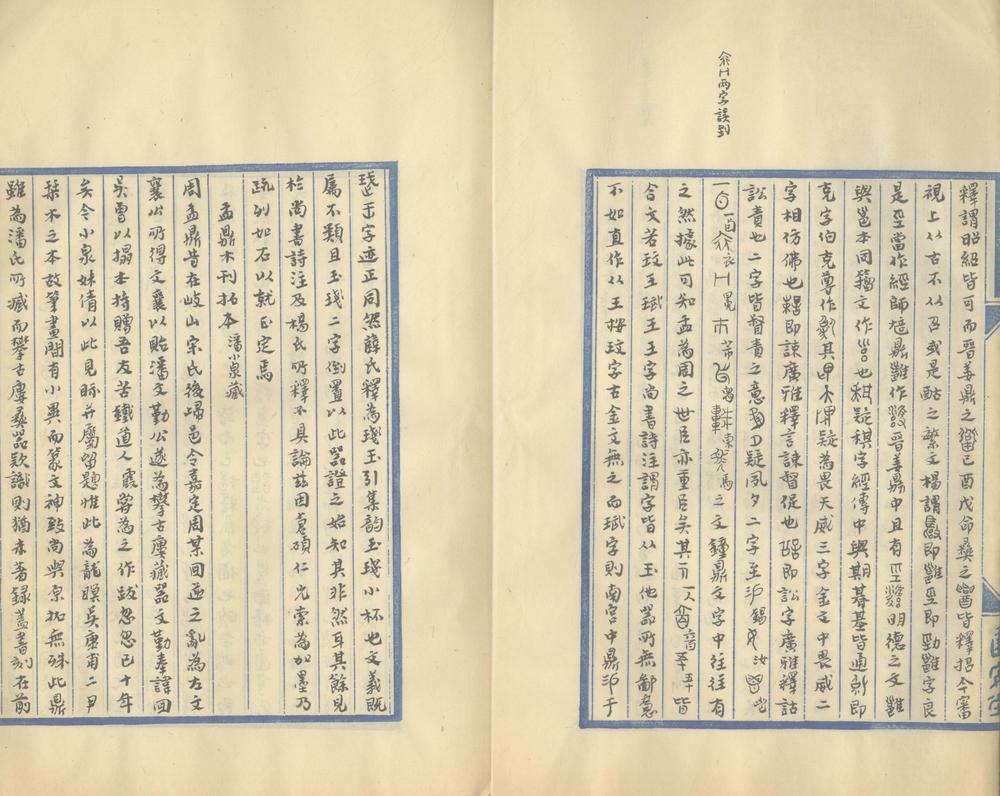 釋謂昭紹皆可而晋姜鼎之己酉戌命彝之皆釋招今審
視上从古不从召或是酤之繁文楊謂即雝巠即勁雝字良
是巠當作經師鼎雝作晋姜鼎中且有巠明德之文雝
與邕本同籀文作也疑稘字經傳中與期朞基皆通即
克字伯克尊作其畀疑為畏天威三字金文中畏威二
字相彷佛也即諫廣雅釋言諫督促也即訟字廣雅釋詁
訟責也二字皆督責之意疑夙夕二字至錫汝
一百衣冕巿芾馬之文鐘鼎文字中往往有
之然據此可知孟為周之世臣亦重臣矣其一人五十皆
合文若玟王珷王王字尚書詩注謂字皆从玉他器所無鄙意
不如直作从王按玟字古金文無之而珷字則南宮中鼎于
兩字誤到
珷王字迹正同然薛氏釋為琖玉引集韵玉琖小杯也文義既
屬不類且玉琖二字倒置以此器證之始知其非然耳其餘見
於尚書詩注及楊氏所釋不具論茲因碩仁兄索為加墨乃
疏列如右以就正定焉
孟鼎木刊拓本 潘小泉藏
周孟鼎昔在岐山宋氏後歸邑令嘉定周某回逆之亂為左文
襄公所得文襄以貽潘文勤公遂為攀古廔藏器文勤奉諱回
吳曾以搨本持贈吾友苦鐵道人霞蓉為之作跋忽忽已十年
矣今小泉妹倩以此見眎并屬留題惟此為龍瞑吳康甫二尹
棐木之本故筆畫間有小異而篆文神致尚與原拓無殊此鼎
雖為潘氏所臧而攀古廔彝器欵識則猶未著錄蓋書刻在前